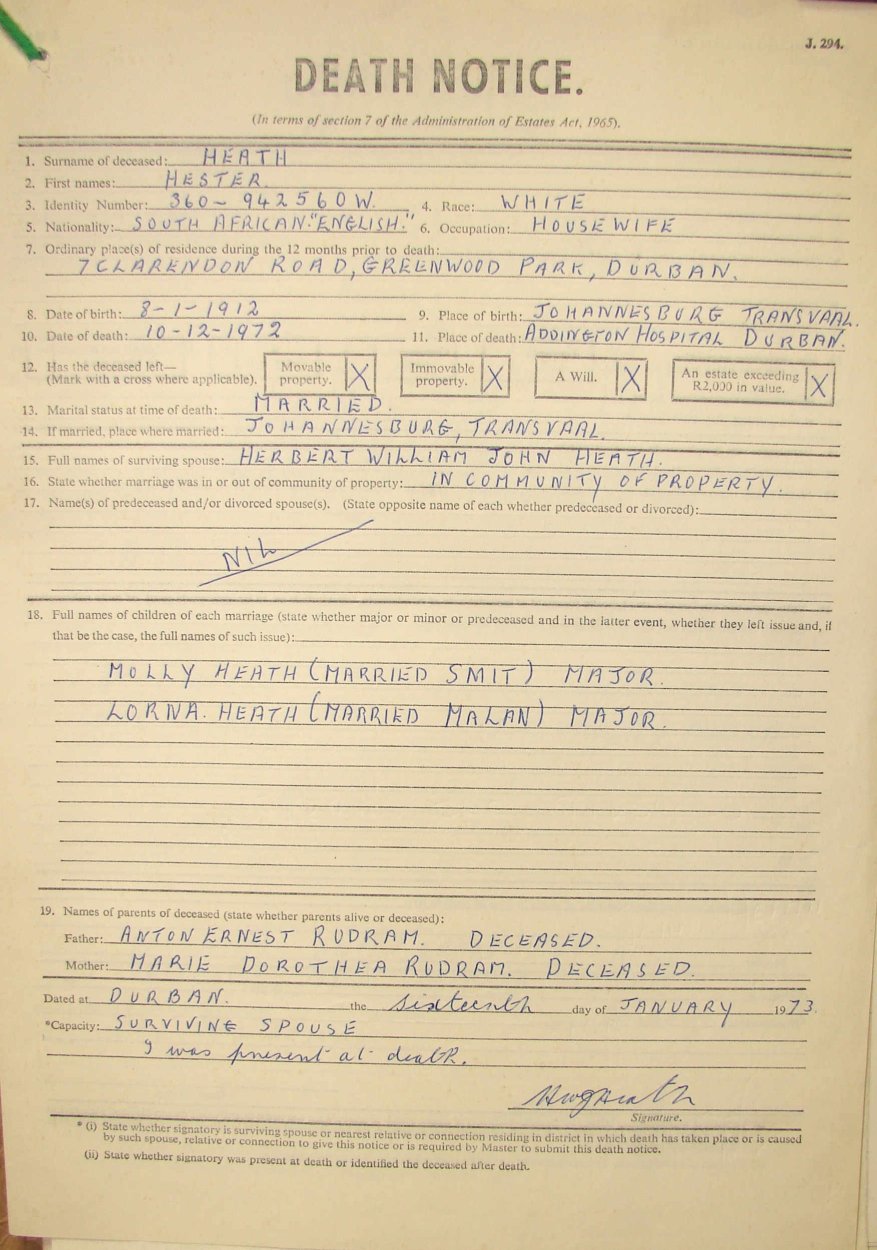 J. 294.
DEATH NOTICE.
(In terms of section 7 of the Administration of Estates Act, 1965).
1. Surname of deceased: HEATH
2. First names: HESTER.
3. Identity Number: 360-942560W. 4. Race: WHITE
5. Nationality: SOUTH AFRICAN. "ENGLISH." 6. Occupation: HOUSEWIFE
7. Ordinary place(s) of residence during the 12 months prior to death:
7 CLARENDON ROAD, GREENWOOD PARK, DURBAN.
8. Date of birth: 8-1-1912 9. Place of birth: JOHANNESBURG TRANSVAAL.
10. Date of death: 10-12-1972 11. Place of death: ADDINGTON HOSPITAL DURBAN.
12. Has the deceased left— (Mark with a cross where applicable). Movable property. X Immovable property. X A Will. X An estate exceeding R2,000 in value. X
13. Marital status at time of death: MARRIED.
14. If married, place where married: JOHANNESBURG, TRANSVAAL.
15. Full names of surviving spouse: HERBERT WILLIAM JOHN HEATH.
16. State whether marriage was in or out of community of property: IN COMMUNITY OF PROPERTY.
17. Name(s) of predeceased and/or divorced spouse(s). (State opposite name of each whether predeceased or divorced):
NIL
18. Full names of children of each marriage (state whether major or minor or predeceased and in the latter event, whether they left issue and, if
that be the case, the full names of such issue):
MOLLY HEATH (MARRIED SMIT) MAJOR.
LORNA. HEATH (MARRIED MALAN) MAJOR.
19. Names of parents of deceased (state whether parents alive or deceased):
Father: ANTON ERNEST RUDRAM. DECEASED.
Mother: MARIE DOROTHEA RUDRAM. DECEASED.
Dated at DURBAN. the sixteenth day of JANUARY 1973.
*Capacity: SURVIVING SPOUSE
I was present at death.
HWJ Heath
Signature.
* (i) State whether signatory is surviving spouse or nearest relative or connection residing in district in which death has taken place or is caused
by such spouse, relative or connection to give this notice or is required by Master to submit this death notice.
(ii) State whether signatory was present at death or identified the deceased after death.